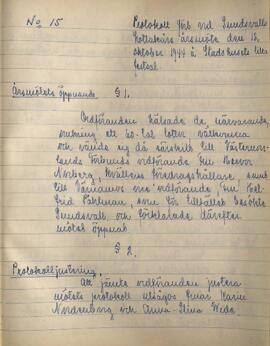 No 15
Protokoll förb vid Sundsvalls
Lottakårs årsmöte den 16
oktober 1944 å Stadshusets lilla
festsal.
Årsmötets öppnande. § 1.
Ordföranden hälsade de närvarande,
omkring ett 60-tal lotter välkomna
och vände sig då särskilt till Västernorr-
lands förbunds ordförande fru
Norberg, kvällens föredragshållare, samt
till Värnamos vice ordförande, fru
Påhlman, som för tillfället besökte
Sundsvall, och förklarade därefter
mötet öppnat.
§ 2.
Protokolljustering.
Att jämte ordföranden justera
mötets protokoll utsågos fruar Karin
Nordenberg och Anna-Stina Wide.